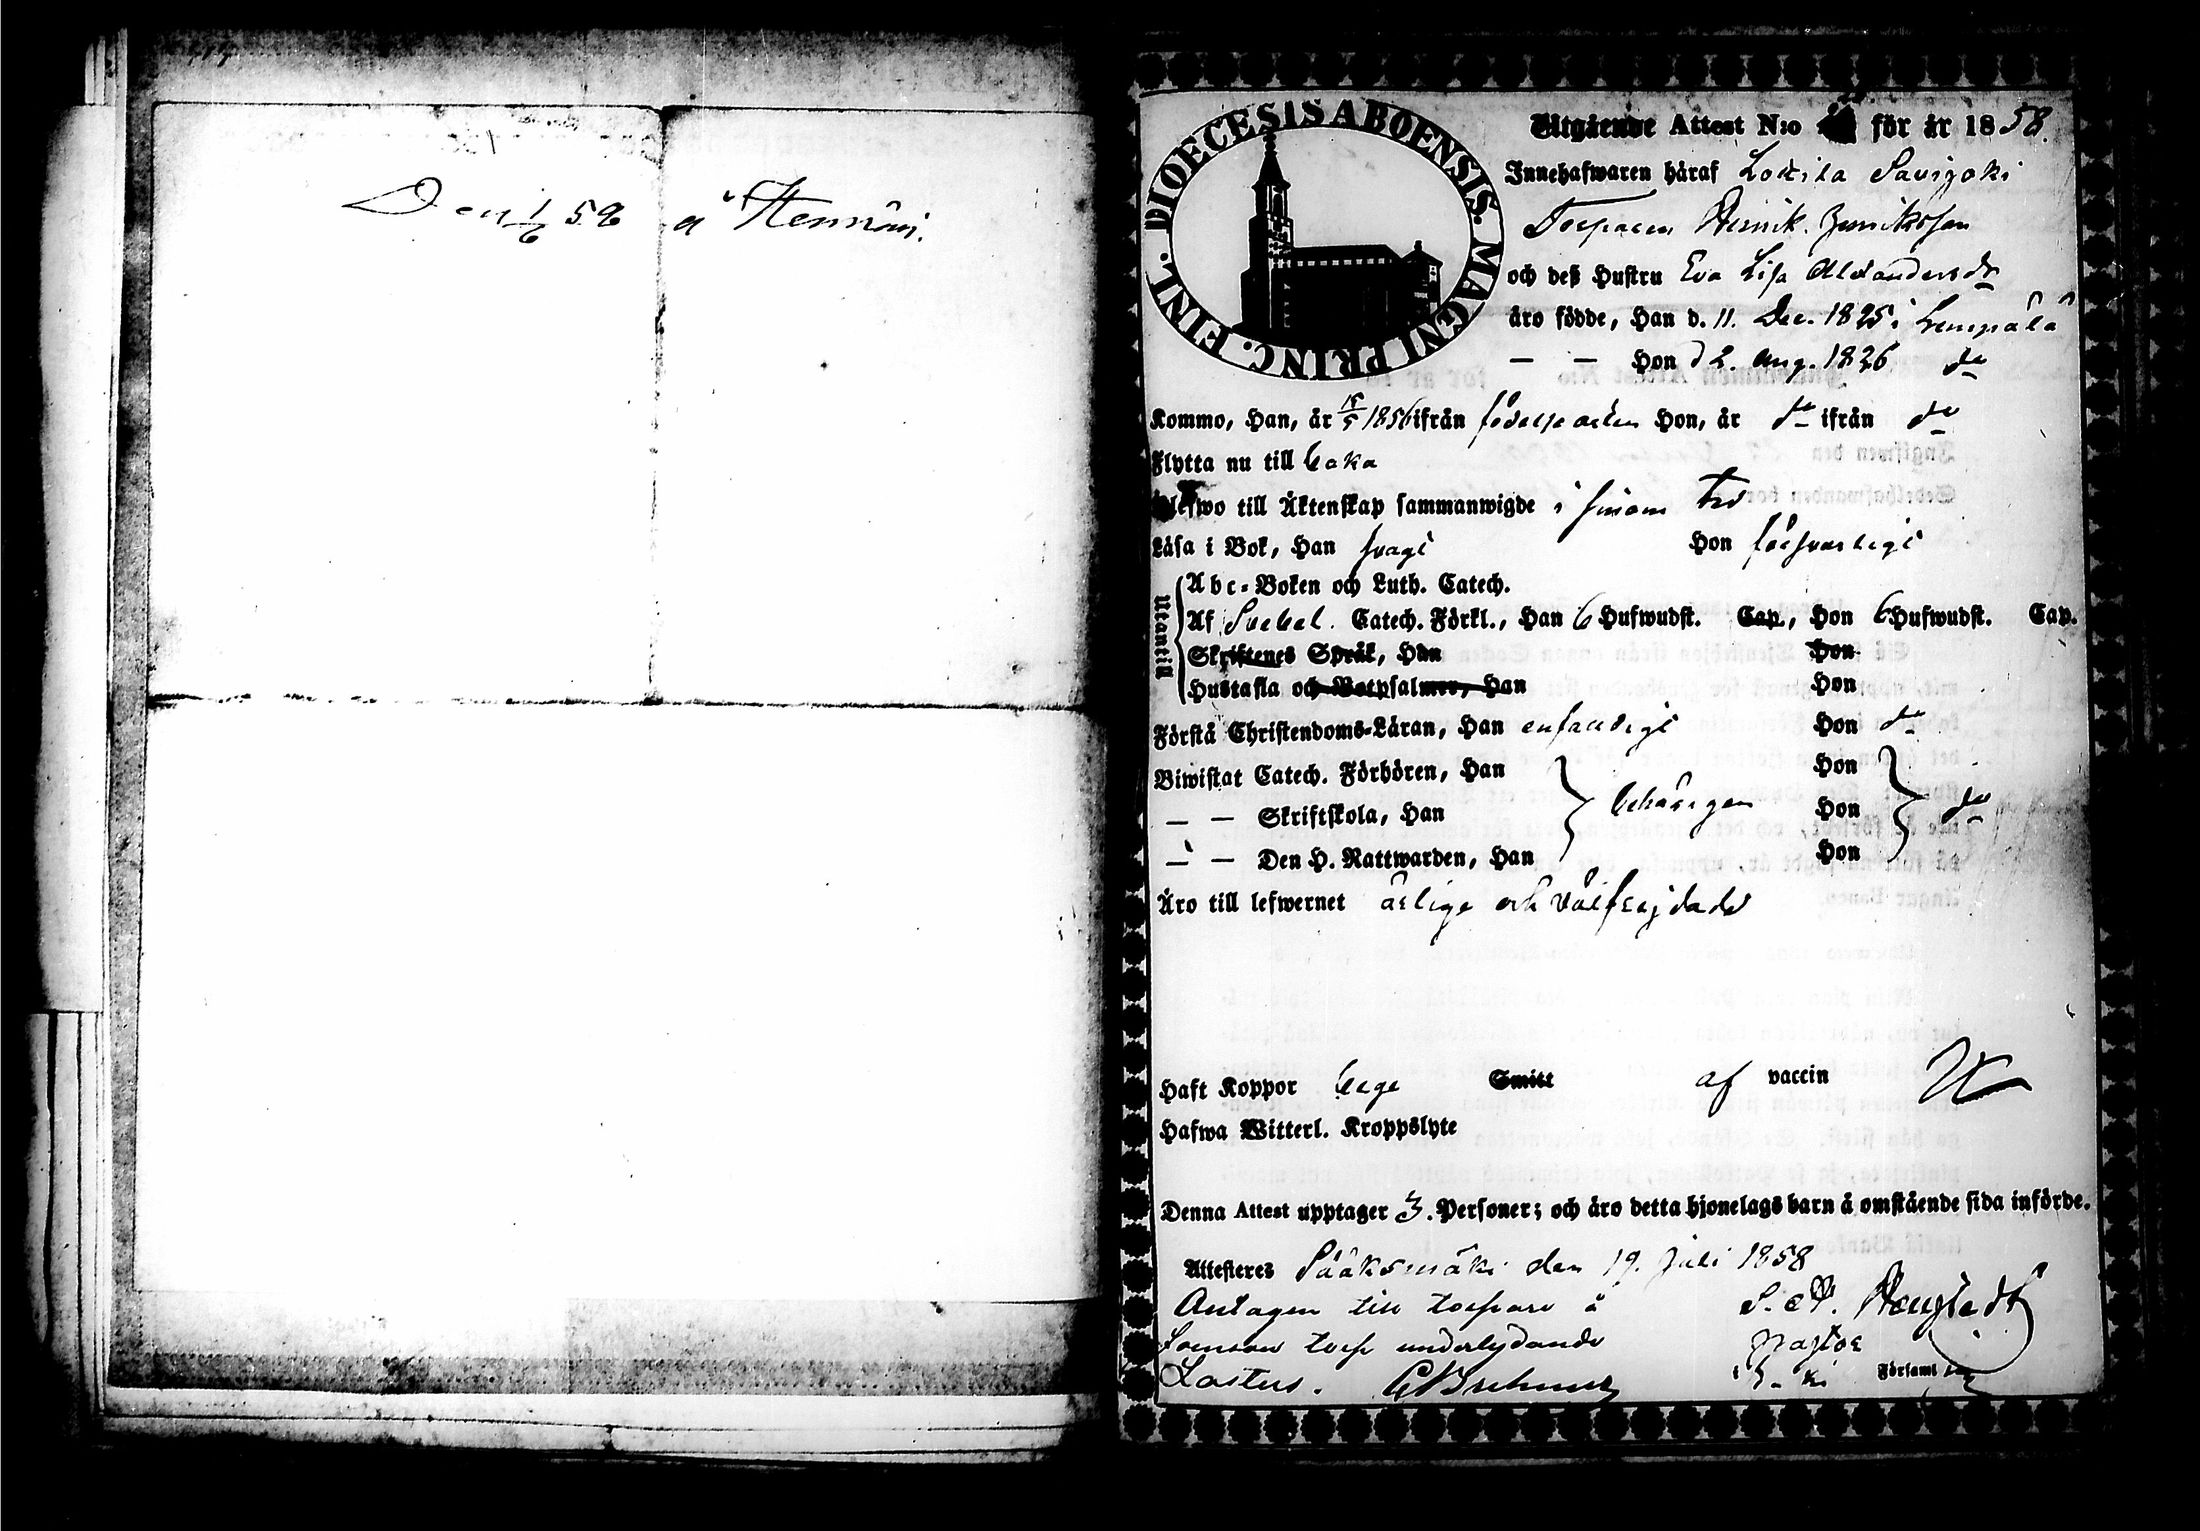 Den 1/6 58 a Hennäri.
DIOECESIS ABOENSIS. MAGNI PRINC. FINL.
Utgående Attest N:o för år 1858.
Innehafwaren häraf Lotila Savijoki
Torparen Henrik Henriksson
och deß Hustru Eva Lisa Alexandersdr
äro födde, Han d. 11. Dec. 1825 i Lempälä
— — Hon d 2. Aug. 1826 do
Kommo, Han, år 1856 ifrån födelseorten Hon, år do ifrån do
Flytta nu till baka
Blefwo till Äktenskap sammanwigde i sinom tid
Läsa i Bok, Han svagt Hon försvarligt
Utantill
Abc-Boken och Luth. Catech.
Af Svebel. Catech. Förkl., Han 6 Hufwudst. Cap., Hon 6 Hufwudst. Cap.
Skriftenes Språk, Han Hon
Hustafla och Botpsalmer, Han Hon
Förstå Christendoms-Läran, Han enfaldigt Hon do
Biwistat Catech. Förhören, Han Hon
— — Skriftskola, Han behörigen Hon do
— — Den H. Nattwarden, Han Hon
Äro till lefwernet ärlige och välfrejdade
Haft Koppor bege Smitt af vaccin
Hafwa Witterl. Kroppslyte
Denna Attest upptager 3. Personer; och äro detta hjonelags barn å omstående sida införde.
Attesteres Sääksmäki den 19. Juli 1858
Antagen till torpare å S. W.
torp underlydande Pastor
Församl